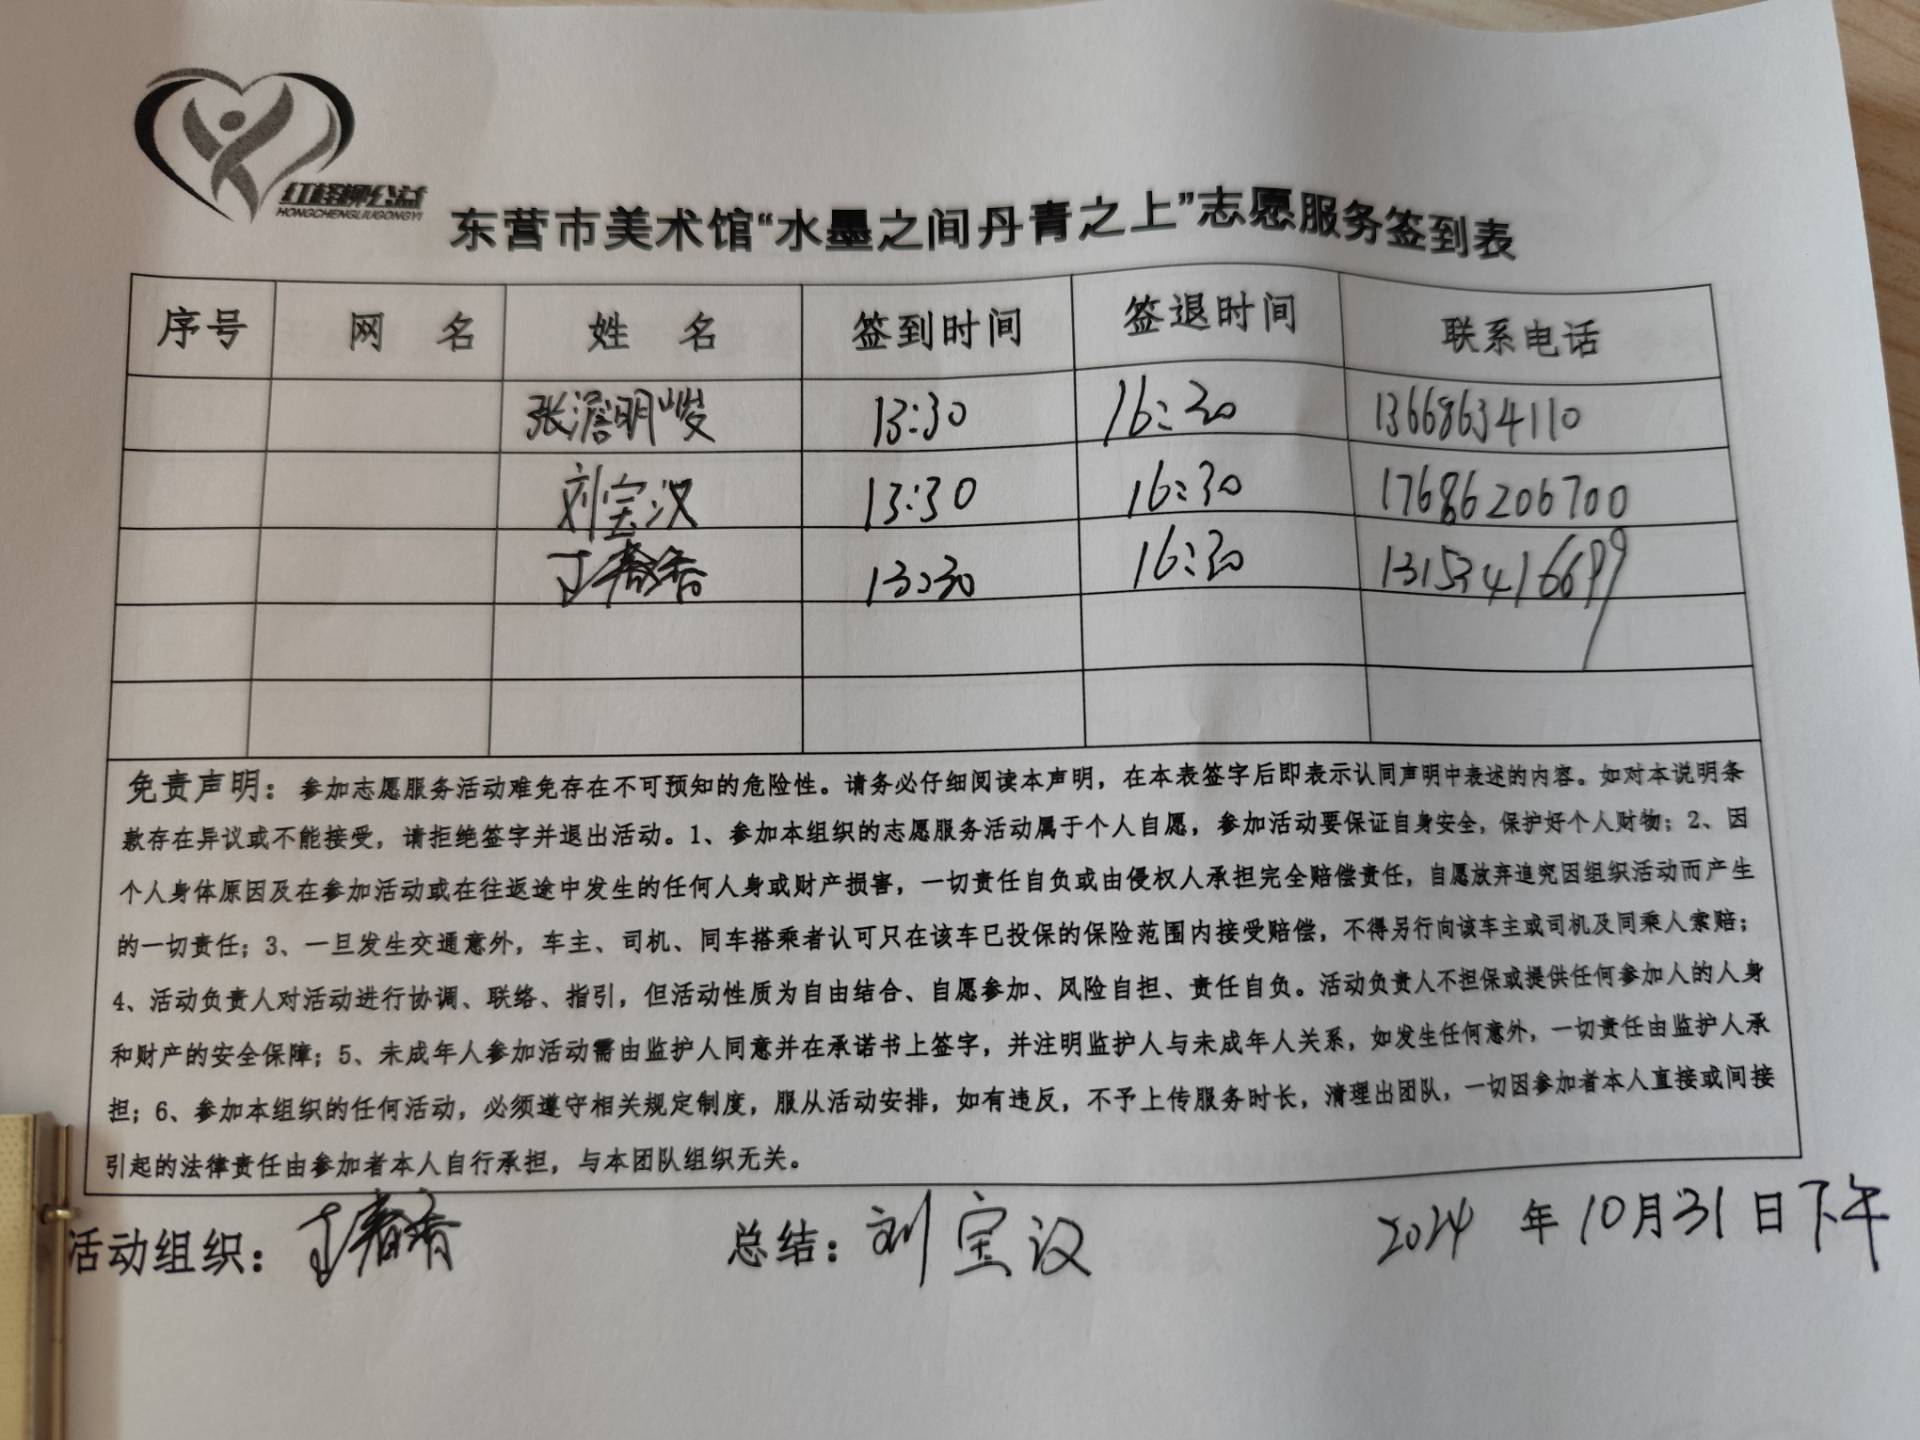 红柽柳公益
HONGCHENGLIUGONGYI
东营市美术馆“水墨之间丹青之上”志愿服务签到表
序号 网 名 姓 名 签到时间 签退时间 联系电话
张澹明峻 13:30 16:30 13668634110
刘宝汉 13:30 16:30 17686206700
丁春香 13:30 16:30 13153416699
免责声明：参加志愿服务活动难免存在不可预知的危险性。请务必仔细阅读本声明，在本表签字后即表示认同声明中表述的内容。如对本说明条
款存在异议或不能接受，请拒绝签字并退出活动。1、参加本组织的志愿服务活动属于个人自愿，参加活动要保证自身安全，保护好个人财物；2、因
个人身体原因及在参加活动或在往返途中发生的任何人身或财产损害，一切责任自负或由侵权人承担完全赔偿责任，自愿放弃追究因组织活动而产生
的一切责任；3、一旦发生交通意外，车主、司机、同车搭乘者认可只在该车已投保的保险范围内接受赔偿，不得另行向该车主或司机及同乘人索赔；
4、活动负责人对活动进行协调、联络、指引，但活动性质为自由结合、自愿参加、风险自担、责任自负。活动负责人不担保或提供任何参加人的人身
和财产的安全保障；5、未成年人参加活动需由监护人同意并在承诺书上签字，并注明监护人与未成年人关系，如发生任何意外，一切责任由监护人承
担；6、参加本组织的任何活动，必须遵守相关规定制度，服从活动安排，如有违反，不予上传服务时长，清理出团队，一切因参加者本人直接或间接
引起的法律责任由参加者本人自行承担，与本团队组织无关。
活动组织：丁春香 总结：刘宝汉 2024 年 10月31日下午